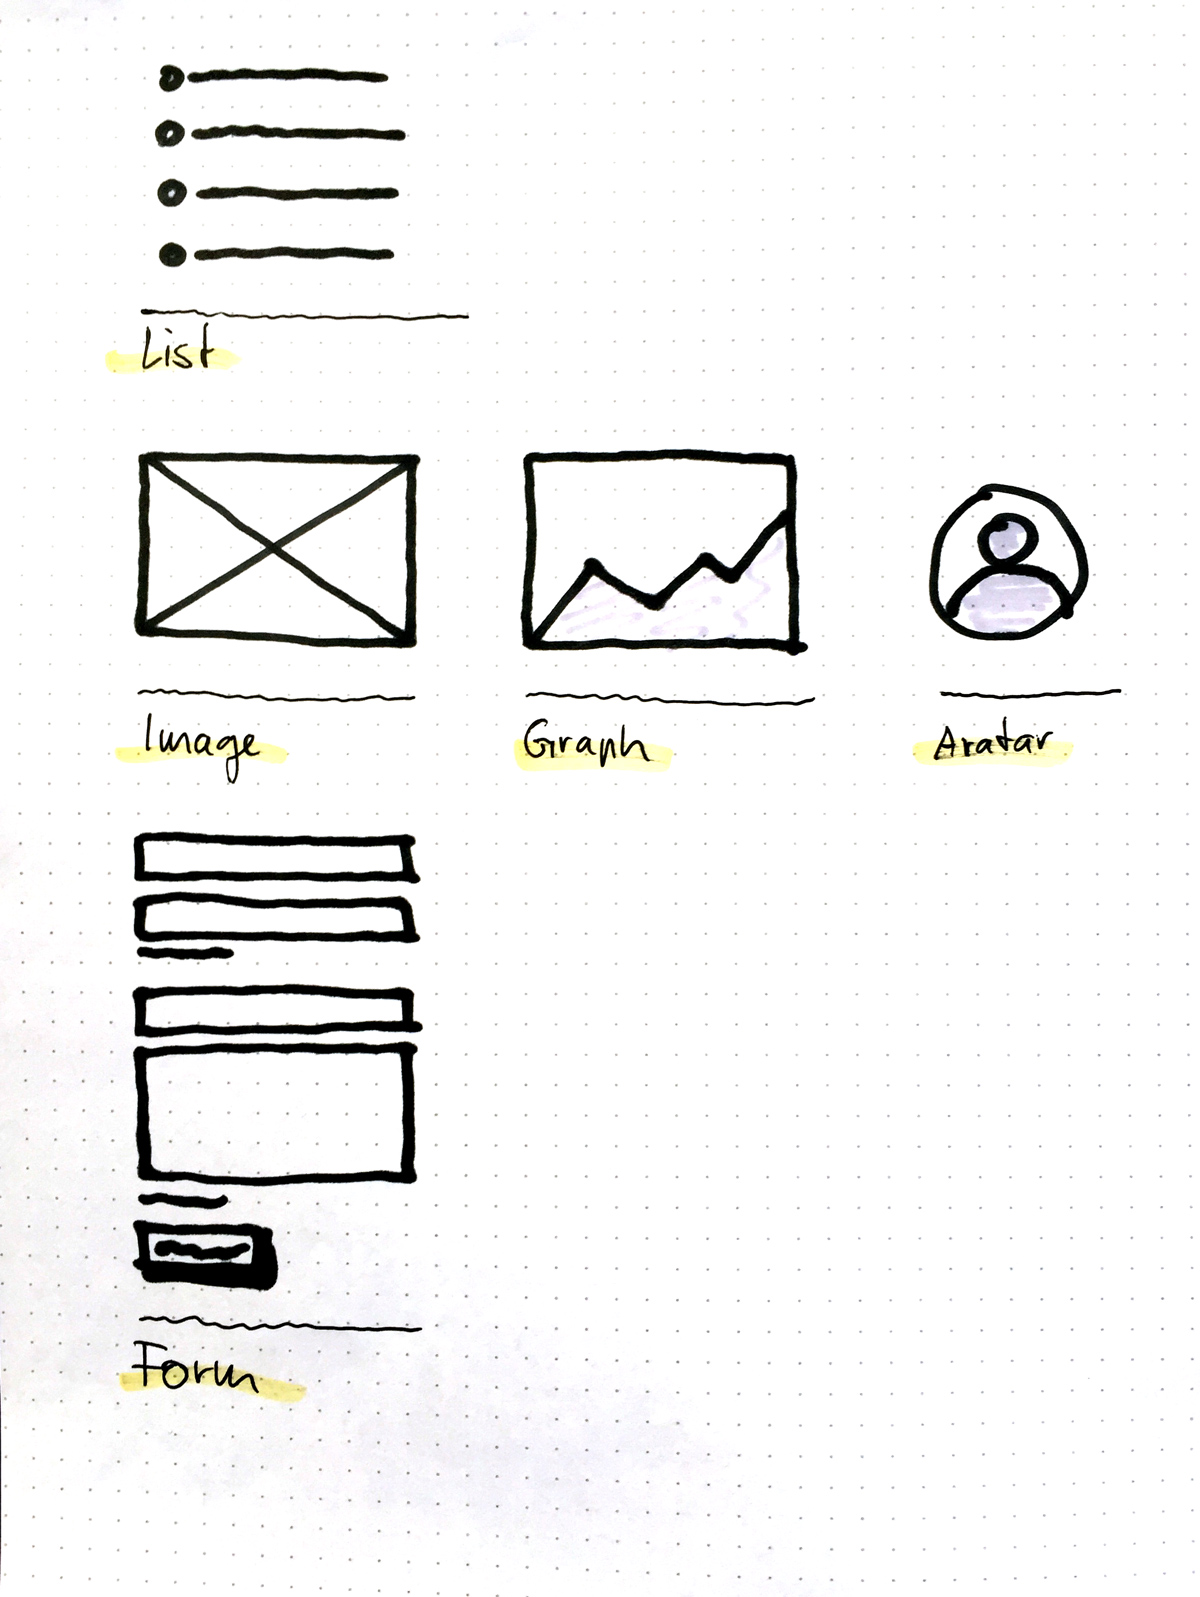 List
Image
Graph
Avatar
Form